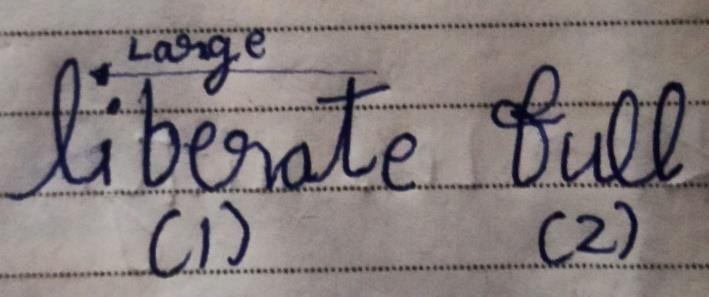 Large
liberate full
(1) (2)